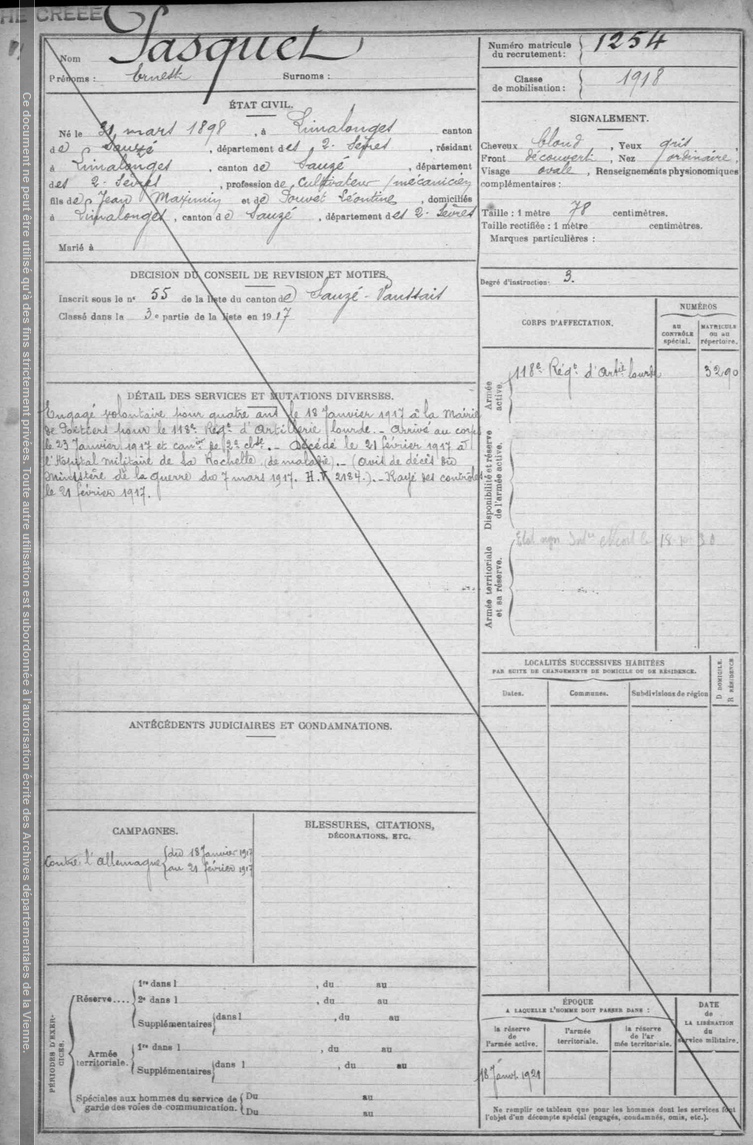 HE CREEE
Ce document ne peut être utilisé qu'à des fins strictement privées. Toute autre utilisation est subordonnée à l'autorisation écrite des Archives départementales de la Vienne.
Nom Pasquet
Prénoms : Ernest Surnoms :
Numéro matricule du recrutement : 1254
Classe de mobilisation : 1918
ÉTAT CIVIL.
Né le 31 mars 1898, à Limalonges canton
de Sauzé, département des 2-Sèvres, résidant
à Limalonges, canton de Sauzé, département
des 2-Sèvres, profession de Cultivateur / mécanicien
fils de Jean Maximin et de Bouvet Léontine, domiciliés
à Limalonges, canton de Sauzé, département des 2-Sèvres
Marié à
SIGNALEMENT.
Cheveux blond, Yeux gris,
Front découvert, Nez ordinaire,
Visage ovale, Renseignements physionomiques
complémentaires :
Taille : 1 mètre 78 centimètres.
Taille rectifiée : 1 mètre centimètres.
Marques particulières :
Degré d'instruction : 3.
DECISION DU CONSEIL DE REVISION ET MOTIFS.
Inscrit sous le n° 55 de la liste du canton de Sauzé-Vaussais
Classé dans la 3e partie de la liste en 1917
DÉTAIL DES SERVICES ET MUTATIONS DIVERSES.
Engagé volontaire pour quatre ans le 18 Janvier 1917 à la Mairie
de Poitiers pour le 118e Régt d'Artillerie lourde. - Arrivé au corps
le 23 Janvier 1917 et canier de 2e cl. - Décédé le 21 février 1917 à
l'Hôpital militaire de La Rochelle (de maladie). - (Avis de décès du
Ministère de la guerre du 7 mars 1917. 2184.). - Rayé des contrôles
le 21 février 1917.
CORPS D'AFFECTATION.
NUMÉROS
AU CONTRÔLE spécial.
MATRICULE OU AU répertoire.
Armée active.
118e Régt d'Artie lourde 3290
Disponibilité et réserve de l'armée active.
Armée territoriale et sa réserve.
LOCALITÉS SUCCESSIVES HABITÉES
PAR SUITE DE CHANGEMENTS DE DOMICILE OU DE RÉSIDENCE.
Dates. Communes. Subdivisions de région D DOMICILE. R RÉSIDENCE
ANTÉCÉDENTS JUDICIAIRES ET CONDAMNATIONS.
CAMPAGNES.
Contre l'Allemagne du 18 Janvier 1917
au 21 février 1917
BLESSURES, CITATIONS,
DÉCORATIONS, ETC.
PÉRIODES D'EXERCICES.
Réserve.... 1re dans l , du au
2e dans l , du au
Supplémentaires dans l , du au
Armée territoriale. 1re dans l , du au
Supplémentaires dans l , du au
Spéciales aux hommes du service de garde des voies de communication. Du au
Du au
ÉPOQUE
A LAQUELLE L'HOMME DOIT PASSER DANS :
la réserve de l'armée active.
l'armée territoriale.
la réserve de l'armée territoriale.
DATE de LA LIBÉRATION du service militaire.
18 Janv. 1921
Ne remplir ce tableau que pour les hommes dont les services font
l'objet d'un décompte spécial (engagés, condamnés, omis, etc.).